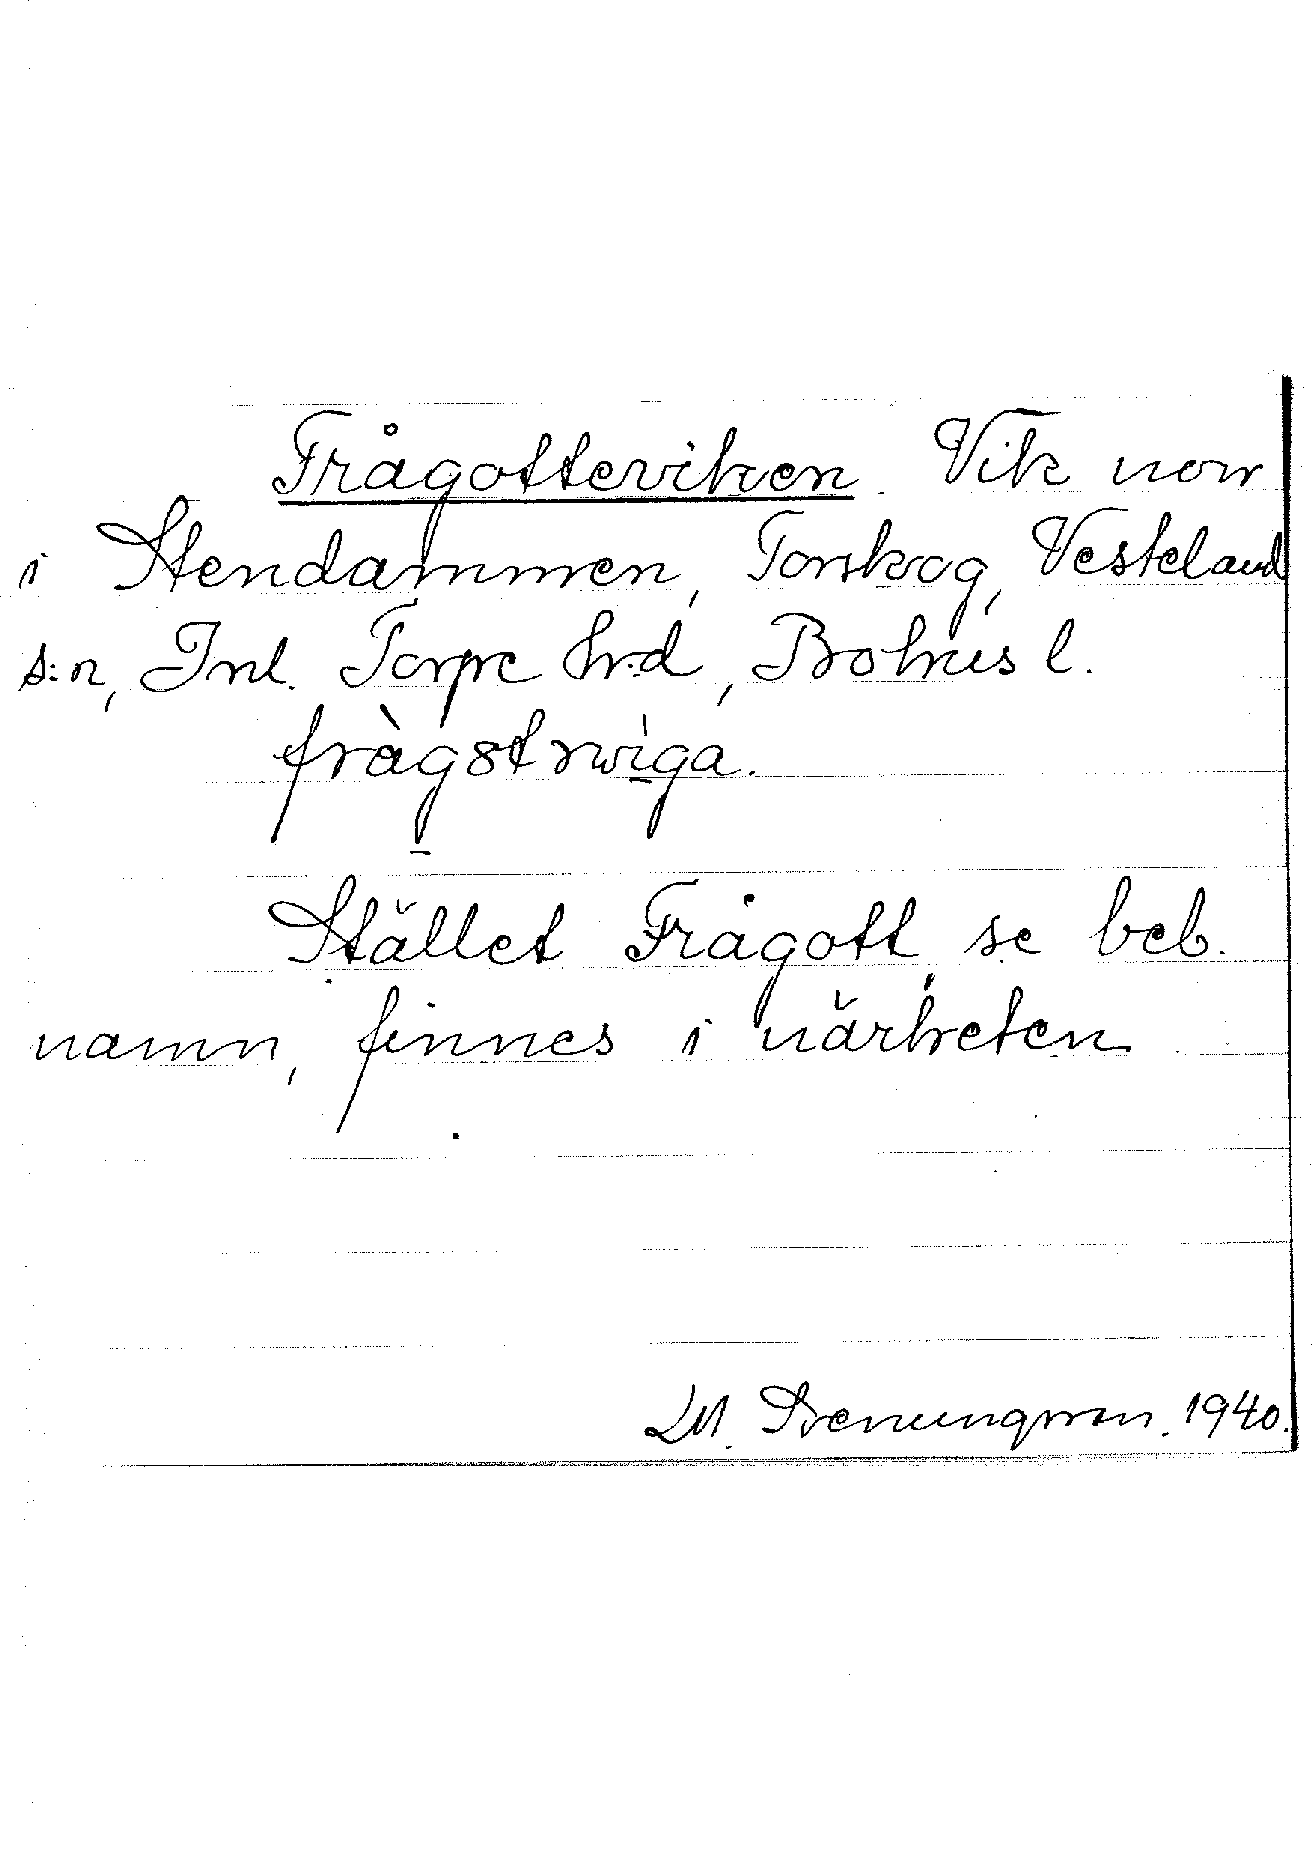 Frågotteviken. Vik norr
i Stendammen, Torskog, Vesteland
s:n, Inl. Torpe h:d, Bohus l.
fràgɞtrwi̱ga.
Stället Frågott, se beb.
namn, finnes i närheten.
1940.